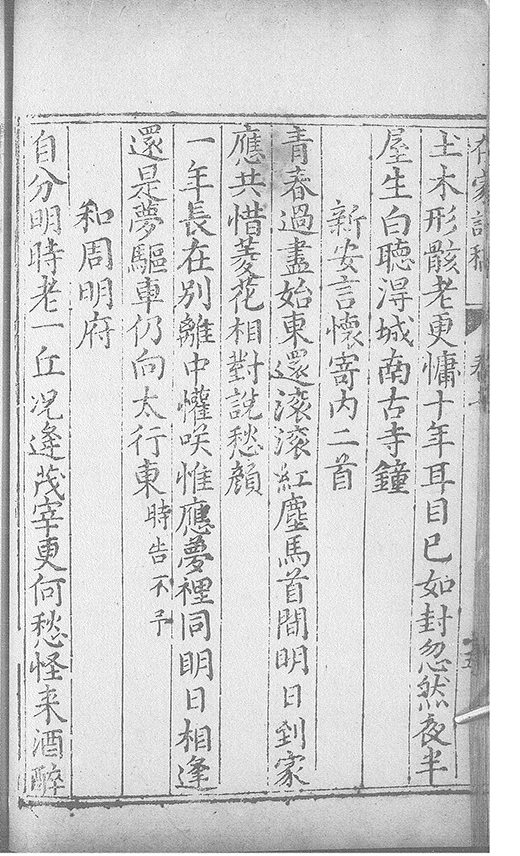 土木形骸老更慵十年耳目已如封忽然夜半
屋生白聽淂城南古寺鐘
新安言懷寄内二首
青春過盡始東還滚滚紅塵馬首間明日到家
應共惜菱花相對說愁顔
一年長在別離中懽咲惟應夢裡同明日相逢
還是夢驅車仍向太行東時告不予
和周明府
自分明時老一丘况逢茂宰更何愁怪来酒醉